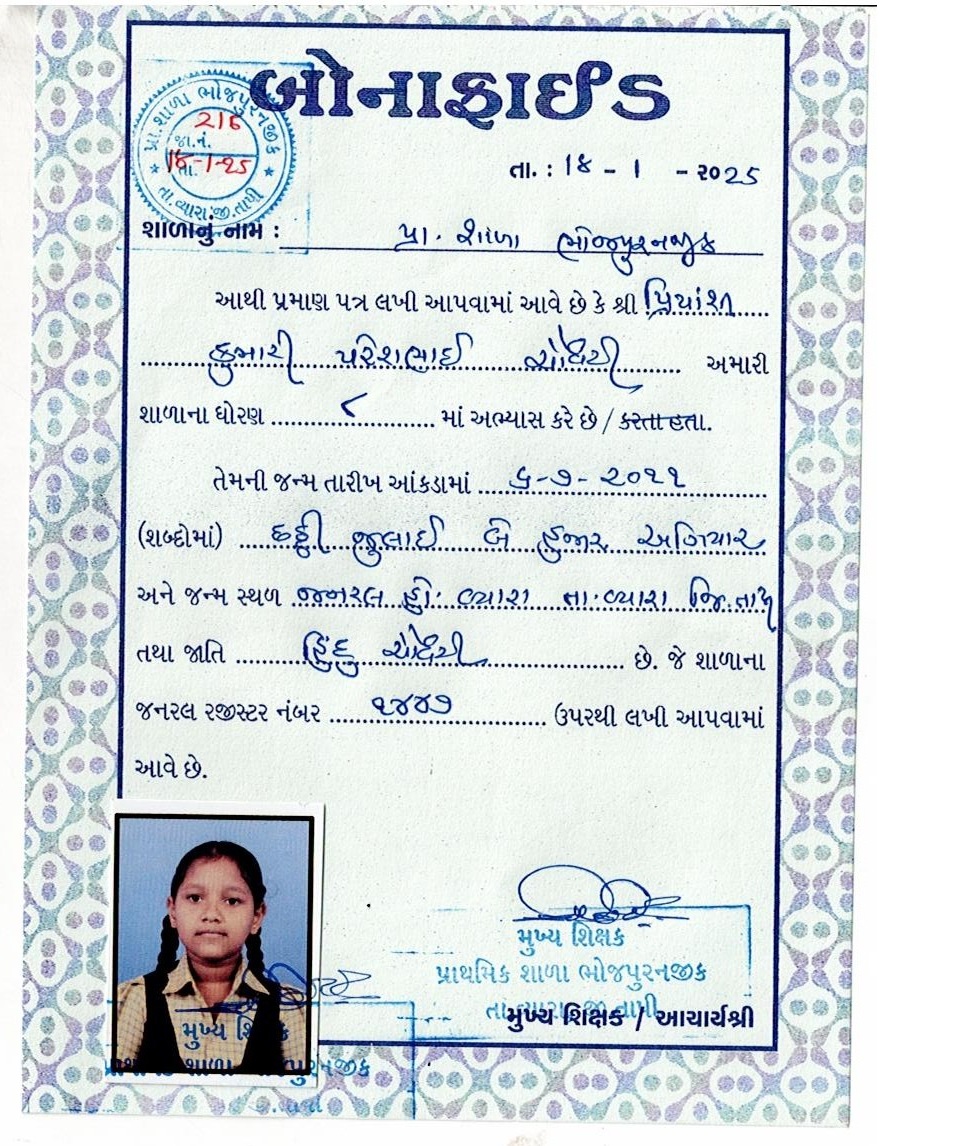 બોનાફાઈડ
પ્રા. શાળા ભોજપુરનજીક
216
જા.નં.
18-1-25
તા.
તા. વ્યારા. જી. તાપી
તા. : ૧૪ - ૧ - ૨૦૨૫
શાળાનું નામ : પ્રા. શાળા ભોજપુરનજીક
આથી પ્રમાણ પત્ર લખી આપવામાં આવે છે કે શ્રી પ્રિયાંશી
કુમારી પરેશભાઈ ચૌધરી અમારી
શાળાના ધોરણ ૮ માં અભ્યાસ કરે છે / કરતા હતા.
તેમની જન્મ તારીખ આંકડામાં ૬-૭-૨૦૧૧
(શબ્દોમાં) છઠ્ઠી જુલાઈ બે હજાર અગિયાર
અને જન્મ સ્થળ જનરલ હો. વ્યારા તા. વ્યારા જિ. તાપી
તથા જાતિ હિંદુ ચૌધરી છે. જે શાળાના
જનરલ રજીસ્ટર નંબર ૧૪૪૭ ઉપરથી લખી આપવામાં
આવે છે.
મુખ્ય શિક્ષક
પ્રાથમિક શાળા ભોજપુરનજીક
તા. વ્યારા જી. તાપી
મુખ્ય શિક્ષક / આચાર્યશ્રી
મુખ્ય શિ ક
શાળા પુરનજીક